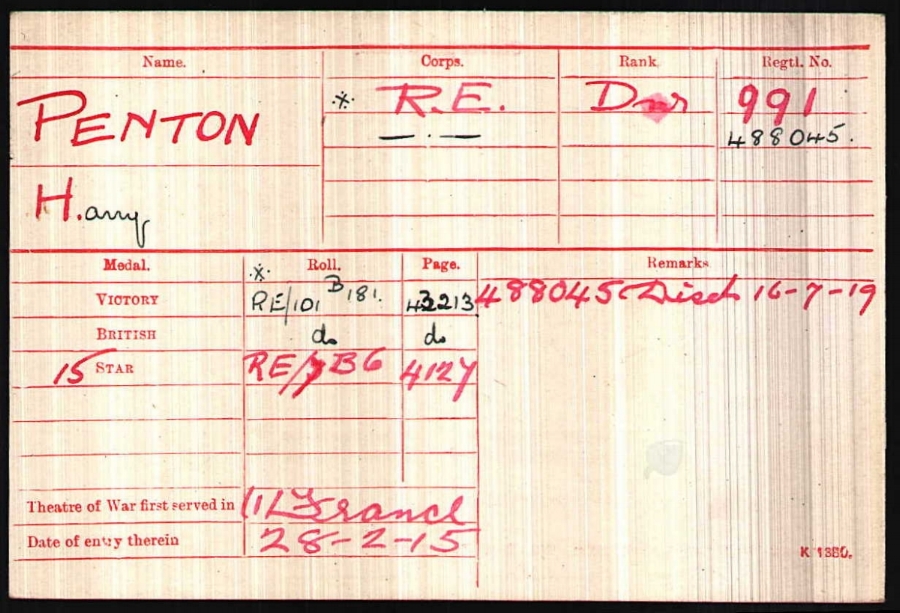 Name. Corps. Rank. Regtl. No.
PENTON * R.E. Dvr 991
— . — 488045.
H.arry
Medal. * Roll. Page. Remarks
VICTORY RE/101 B 181. 43213 488045 Disch 16-7-19
BRITISH do do
15 STAR RE/7 B6 4127
Theatre of War first served in (1) France
Date of entry therein 28-2-15
K 1380.